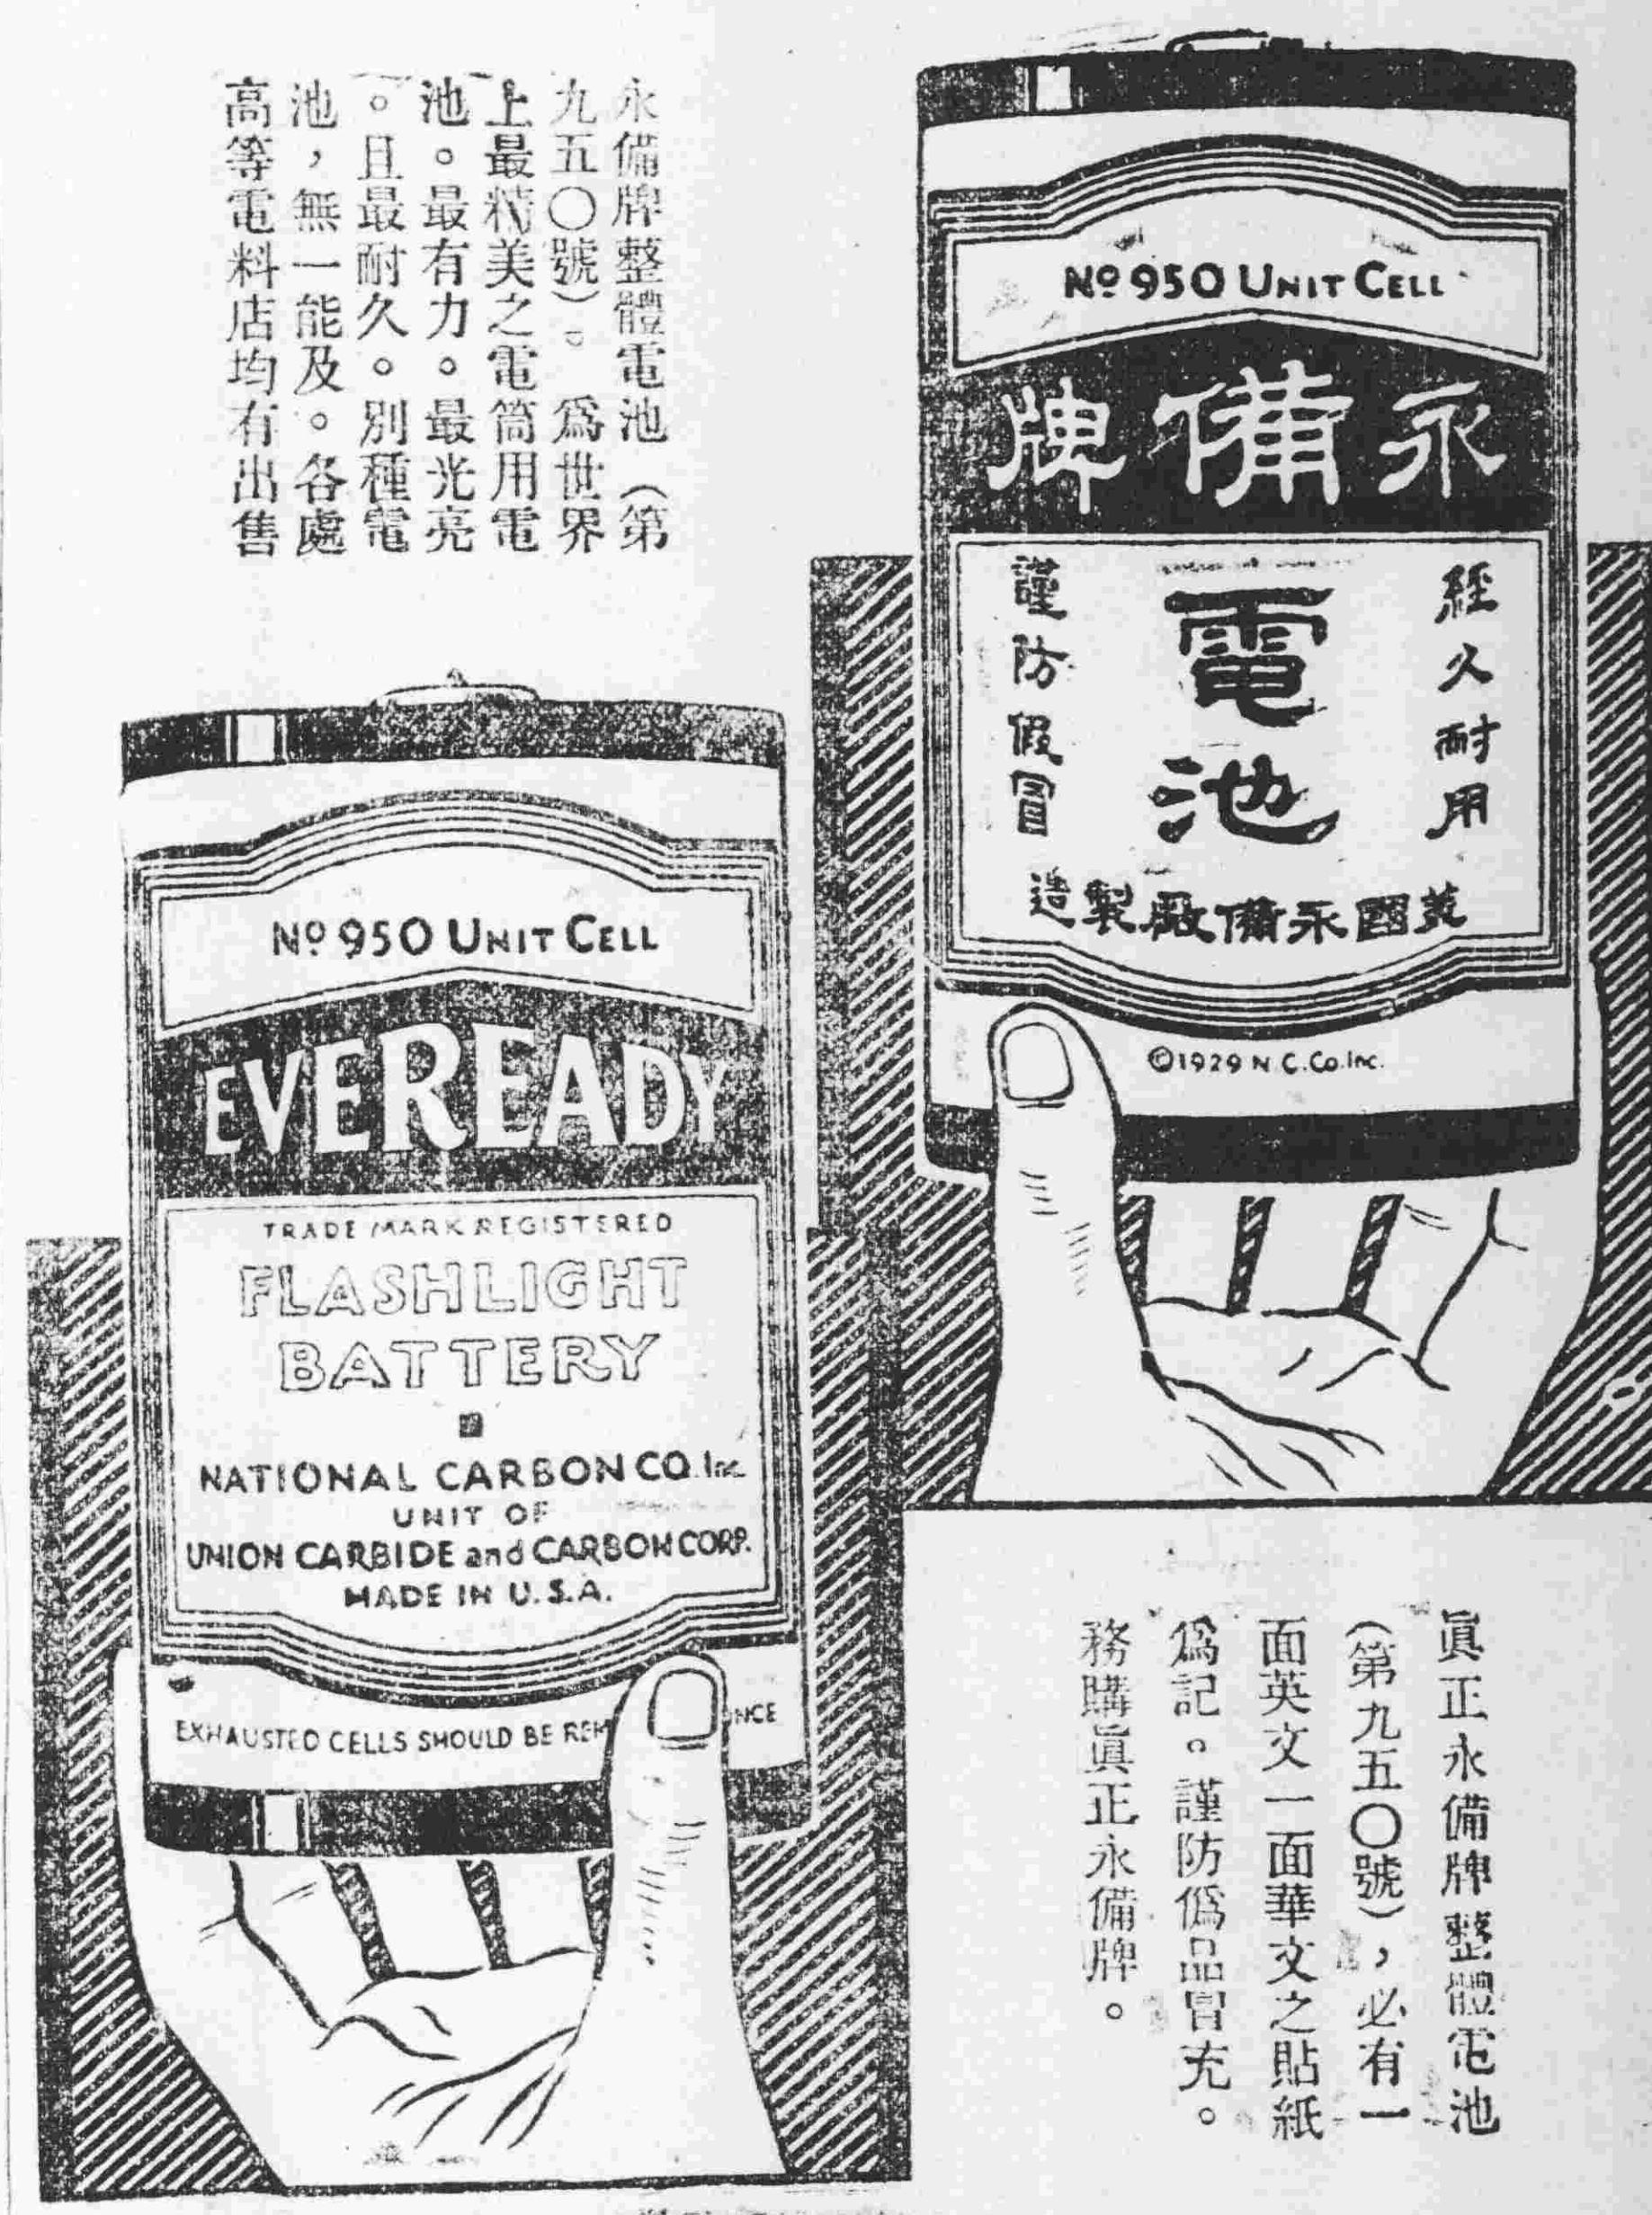 永備牌整體電池（第
九五〇號）。為世界
上最精美之電筒用電
池。最有力。最光亮
。且最耐久。別種電
池，無一能及。各處
高等電料店均有出售
Nº 950 UNIT CELL
永備牌
經久耐用
電池
謹防假冒
美國永備廠製造
©1929 N.C.Co.Inc.
Nº 950 UNIT CELL
EVEREADY
TRADE MARK REGISTERED
FLASHLIGHT
BATTERY
NATIONAL CARBON CO. Inc.
UNIT OF
UNION CARBIDE and CARBON CORP.
MADE IN U.S.A.
EXHAUSTED CELLS SHOULD BE
眞正永備牌整體電池
（第九五〇號），必有一
面英文一面華文之貼紙
為記。謹防偽品冒充。
務購眞正永備牌。